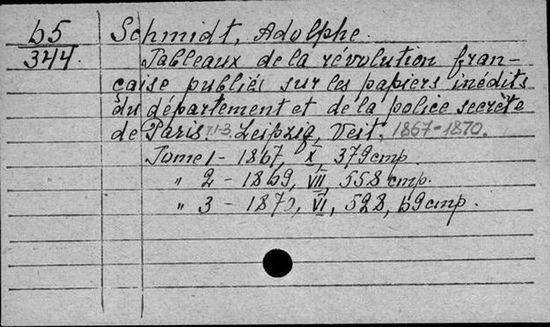 b5
344
Schmidt, Adolphe.
Tableaux de la révolution fran-
çaise publiés sur les papiers inédits
du département et de la police secrète
de Paris. T.1-3. Leipzig, Veit. 1867-1870.
Tome 1 - 1867, X, 379 cmp.
" 2 - 1869, VII, 558 cmp.
" 3 - 1870, VI, 528, 69 cmp.